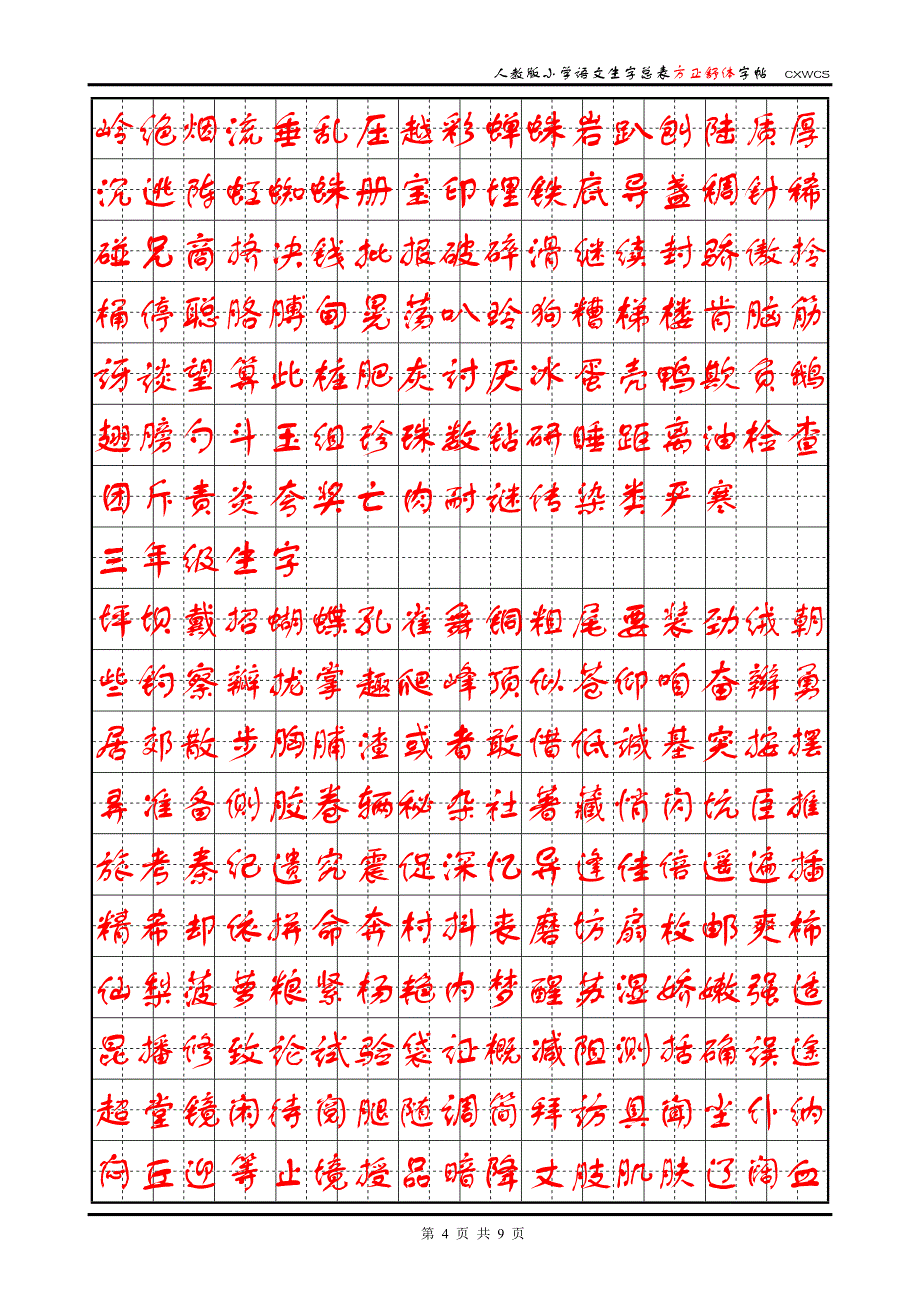 人教版小学语文生字总表方正舒体字帖 CXWCS
岭绝烟流垂乱压越彩蝉蛛岩趴刨陆质厚
沉逃阵虹蜘蛛册宝印埋铁底导盏稠针稀
碰兄商挤决钱批报破碎滑继续封骄傲拎
桶停聪胳膊甸晃荡叭玲狗糟梯楼肯脑筋
讶谈望算此桩肥灰讨厌冰蛋壳鸭欺负鹅
翅膀勺斗玉组珍珠数钻研睡距离油检查
团斥责炎夸奖亡肉耐谜传染类严寒
三年级生字
坪坝戴招蝴蝶孔雀舞铜粗尾要装劲绒朝
些钓察瓣拢掌趣爬峰顶似苍仰咱奋辫勇
居郊散步胸脯渣或者敢惜低诚基突按摆
弄准备侧胶卷辆秘杂社著藏悄闪坑臣推
旅考秦纪遗究震促深忆异逢佳倍遥遍插
精希却依拼命奔村抖丧磨坊扇枚邮爽柿
仙梨菠萝粮紧杨艳内梦醒苏湿娇嫩强适
昆播修致论试验袋证概减阻测括确误途
超堂镜闲待阅腿随调简拜访具闻尘仆纳
闷丘迎等止境授品暗降丈肢肌肤辽阔血
第 4 页 共 9 页